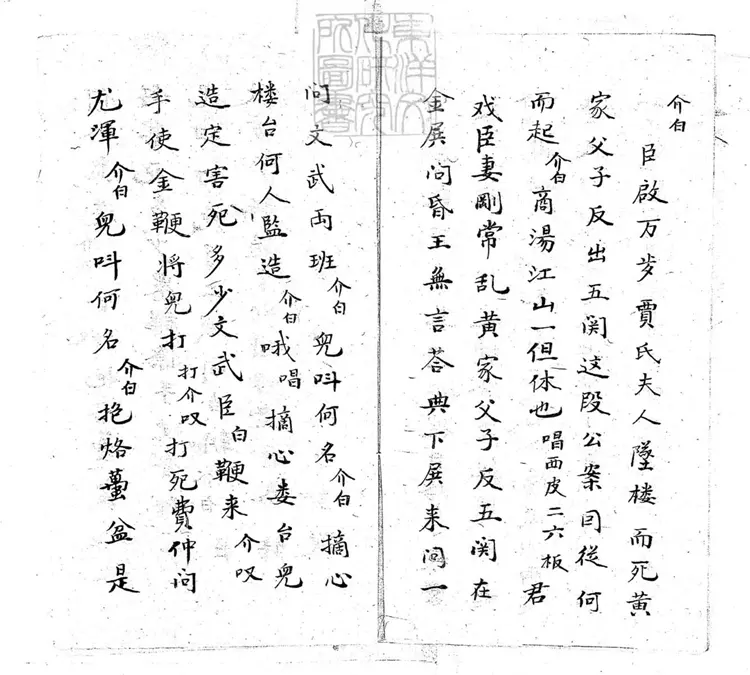 介白
臣啟万岁賈氏夫人墜楼而死黄
家父子反出五関这段公案曰從何
而起介白商湯江山一但休也唱西皮二六板君
戏臣妻剛常乱黄家父子反五関在
金屏问昏王無言荅典下屏来问一
问文武両班介白兜呌何名介白摘心
楼台何人監造介白哦唱摘心娄台兜
造定害死多少文武臣白鞭来介叹
手使金鞭将兜打打介叹打死費仲问
尤渾介白兜呌何名介白抱烙蠆盆是
東洋文化研究所圖書